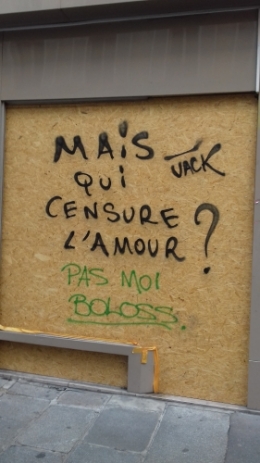 MAIS
JACK
QUI
CENSURE
L'AMOUR ?
PAS MOI
BOLOSS.